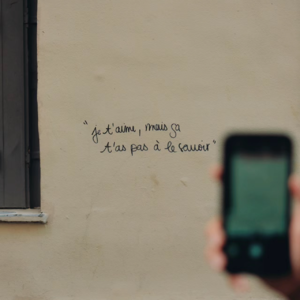 "je t'aime, mais ça
t'as pas à le savoir"